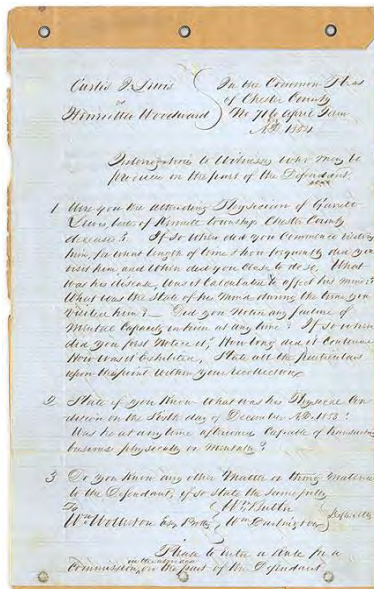 Curtis J. Lewis
vs
Henrietta Woodward
In the Common Pleas
of Chester County
No 76 April Term
A.D. 1854
Interrogatories to Witnesses who may be
produced on the part of the Defendant
1 Were you the attending Physician of
Lewis, late of township Chester County
deceased? If So when did you Commence visiting
him, for what length of time & how frequently did you
visit him and when did you cease to do so. What
was his disease, was it Calculated to affect his mind?
What was the State of his mind during the time you
visited him? — Did you notice any failure of
Mental Capacity in him at any time? If so when
did you first Notice it, How long did it Continue
How was it Exhibited, State all the particulars
upon this point within your recollection,
2 State if you Know what was his Physical Con
dition on the Sixth day of December A.D. 1853?
Was he at any time afterwards Capable of transacting
business physically or Mentally?
3 Do you Know any other Matter or thing Material
to the Defendant, if so State the Same fully
To
Wm Wollerton Esq Prothy
W. Butler
Wm Darlington
Deft's Attys
Please to enter a Rule for a
Commission, on the part of the Defendant